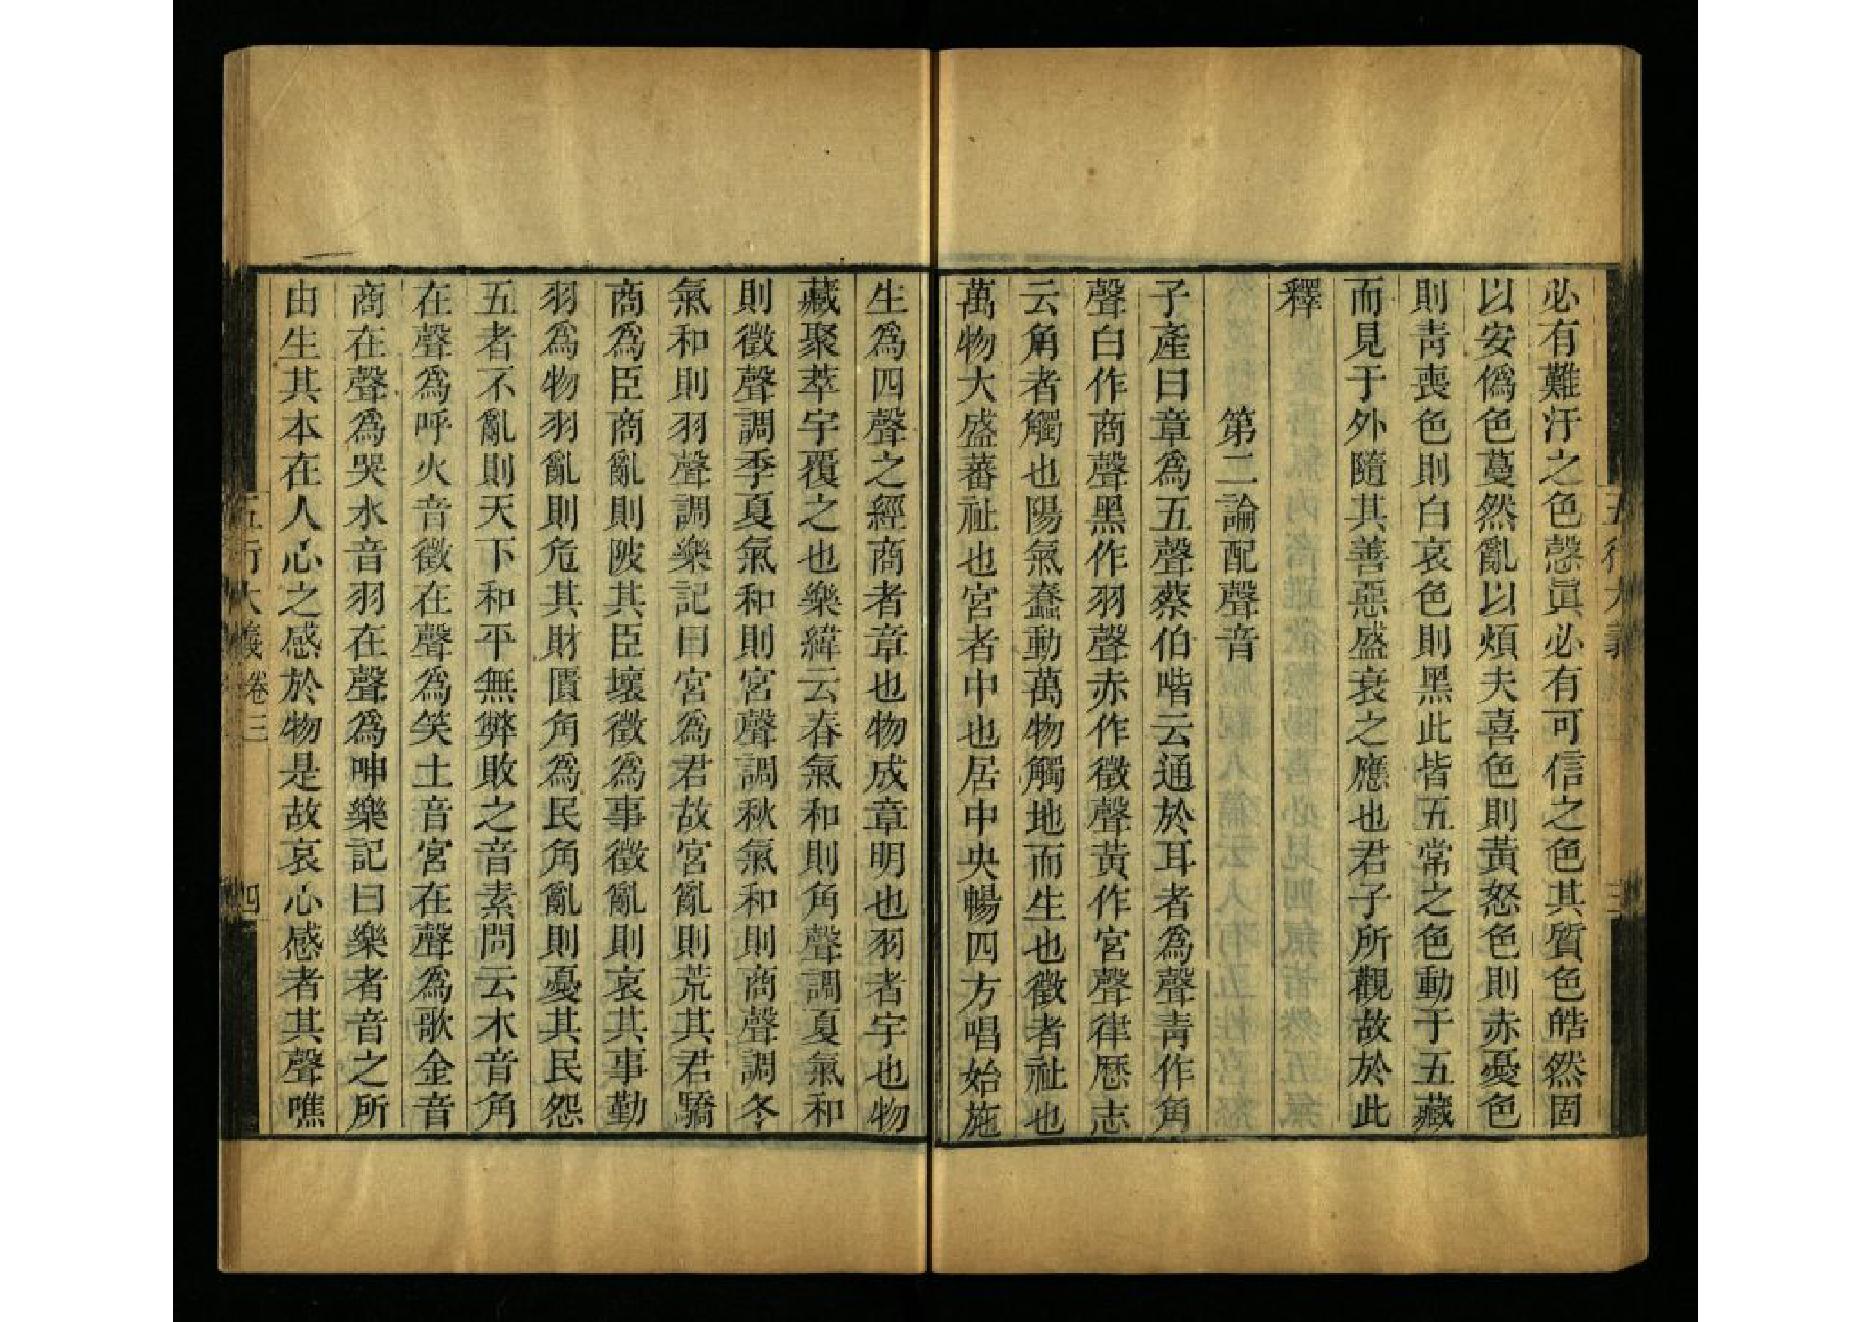 必有難汙之色慤眞必有可信之色其質色皓然固
以安僞色蔓然亂以煩夫喜色則黃怒色則赤憂色
則靑喪色則白哀色則黑此皆五常之色動于五藏
而見于外隨其善惡盛衰之應也君子所觀故於此
釋
第二論配聲音
子產曰章爲五聲蔡伯喈云通於耳者爲聲靑作角
聲白作商聲黑作羽聲赤作徵聲黃作宮聲律歷志
云角者觸也陽氣蠢動萬物觸地而生也徵者祉也
萬物大盛蕃祉也宮者中也居中央暢四方唱始施
生爲四聲之經商者章也物成章明也羽者宇也物
藏聚萃宇覆之也樂緯云春氣和則角聲調夏氣和
則徵聲調季夏氣和則宮聲調秋氣和則商聲調冬
氣和則羽聲調樂記曰宮爲君故宮亂則荒其君驕
商爲臣商亂則陂其臣壞徵爲事徵亂則哀其事勤
羽爲物羽亂則危其財匱角爲民角亂則憂其民怨
五者不亂則天下和平無弊敗之音素問云木音角
在聲爲呼火音徵在聲爲笑土音宮在聲爲歌金音
商在聲爲哭水音羽在聲爲呻樂記曰樂者音之所
由生其本在人心之感於物是故哀心感者其聲噍
五行大義卷三
四